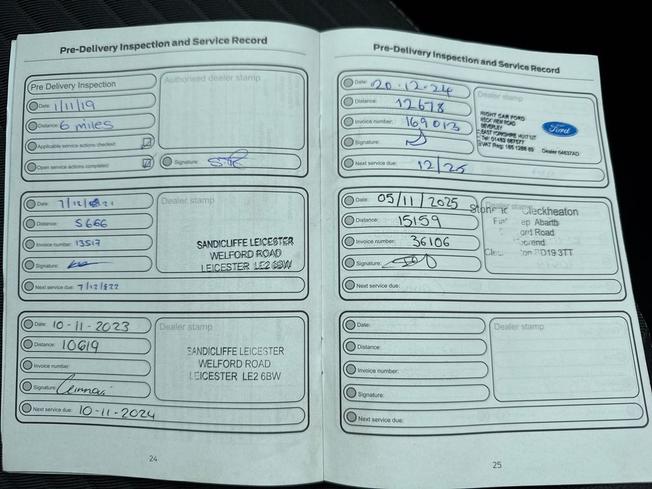 Pre-Delivery Inspection and Service Record
Pre Delivery Inspection
Authorised dealer stamp
Date: 1/11/19
Distance: 6 miles
Applicable service actions checked:
Open service actions completed:
Signature:
Date: 7/12/2021
Dealer stamp
Distance: 5666
Invoice number: 13517
Signature:
Next service due: 7/12/222
SANDICLIFFE LEICESTER
WELFORD ROAD
LEICESTER LE2 6BW
Date: 10-11-2023
Dealer stamp
Distance: 10619
Invoice number:
Signature:
Next service due: 10-11-2024
SANDICLIFFE LEICESTER
WELFORD ROAD
LEICESTER LE2 6BW
24
Pre-Delivery Inspection and Service Record
Date: 20.12.24
Dealer stamp
Distance: 12678
Invoice number: 169013
Signature:
Next service due: 12/25
RIGHT CAR FORD
BEVERLEY
EAST YORKSHIRE
Ford
Date: 05/11/2025
Dealer stamp
Distance: 15159
Invoice number: 36106
Signature:
Next service due:
Cleckheaton
Abarth
Road
BD19 3TT
Date:
Dealer stamp
Distance:
Invoice number:
Signature:
Next service due:
25